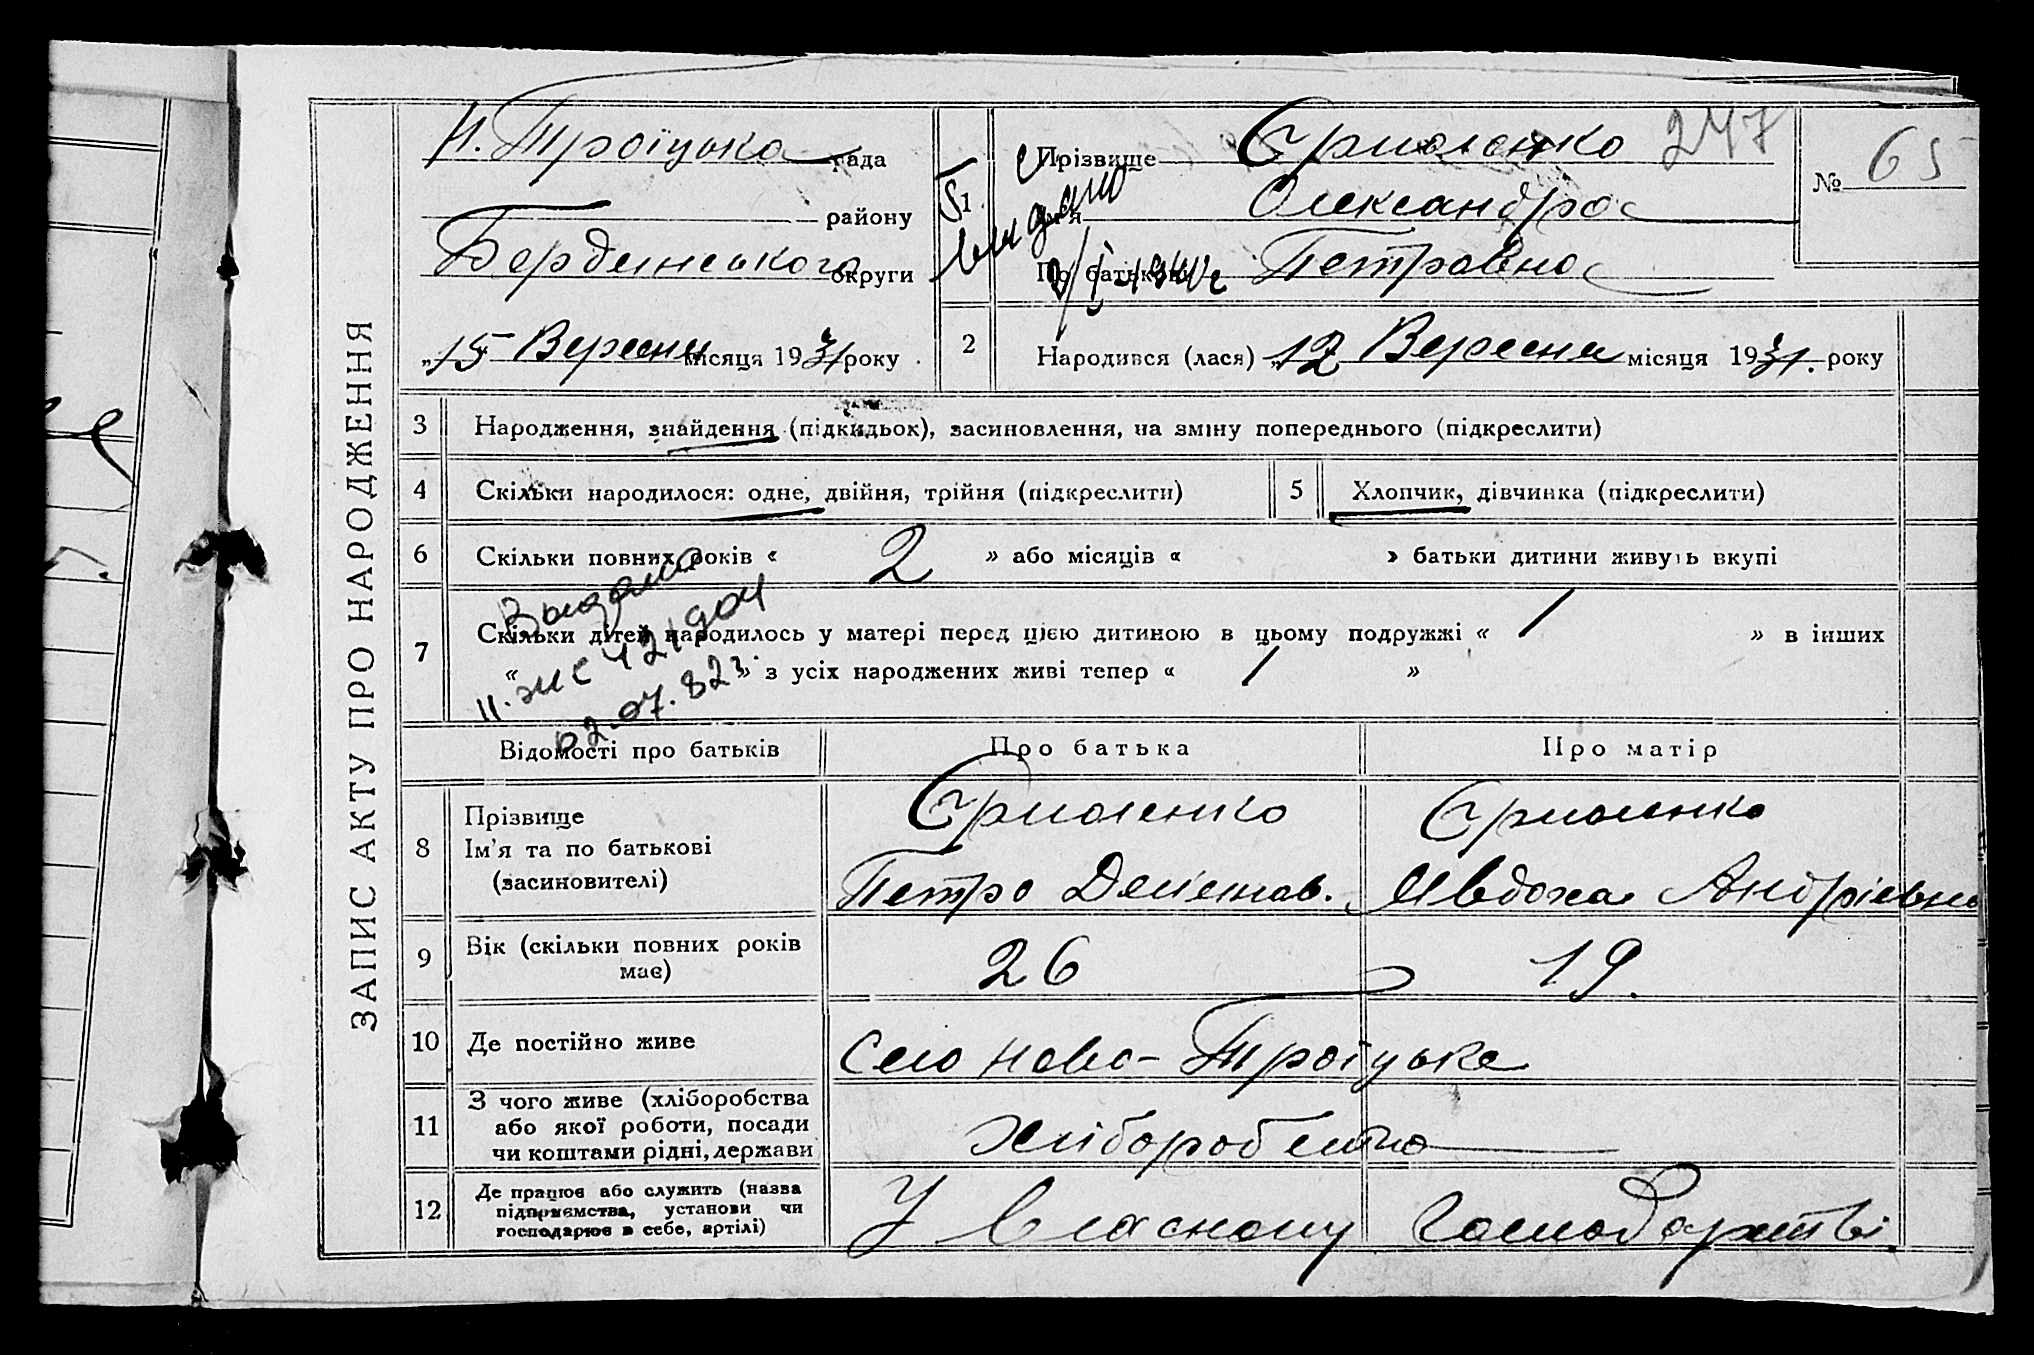 ЗАПИС АКТУ ПРО НАРОДЖЕННЯ
Н. Троїцька рада
району
Бердянського округи
„15 Вересня місяця 1931 року
1
Прізвище Єрмоленко 247
Ім'я Олександра
По батькові Петровна
№ 65
видано
2 Народився (лася) „12 Вересня місяця 1931. року
3 Народження, знайдення (підкидьох), засиновлення, на зміну попереднього (підкреслити)
4 Скільки народилося: одне, двійня, трійня (підкреслити)
5 Хлопчик, дівчинка (підкреслити)
6 Скільки повних років « 2 » або місяців « » батьки дитини живуть вкупі
7 Скільки дітей народилось у матері перед цією дитиною в цьому подружжі « 1 » в інших
« » з усіх народжених живі тепер « 1 »
Выдано
II. ЖС 421904
02.07.82г.
Відомості про батьків Про батька Про матір
8 Прізвище
Ім'я та по батькові
(засиновителі)
Єрмоленко
Петро
Єрмоленко
Явдоха Андріевна
9 Вік (скільки повних років
має)
26 19.
10 Де постійно живе Село Ново-Троїцьке
11 З чого живе (хліборобства
або якої роботи, посади
чи коштами рідні, держави
12 Де працює або служить (назва
підприємства, установи чи
господарює в себе, артілі)
У власному господарстві